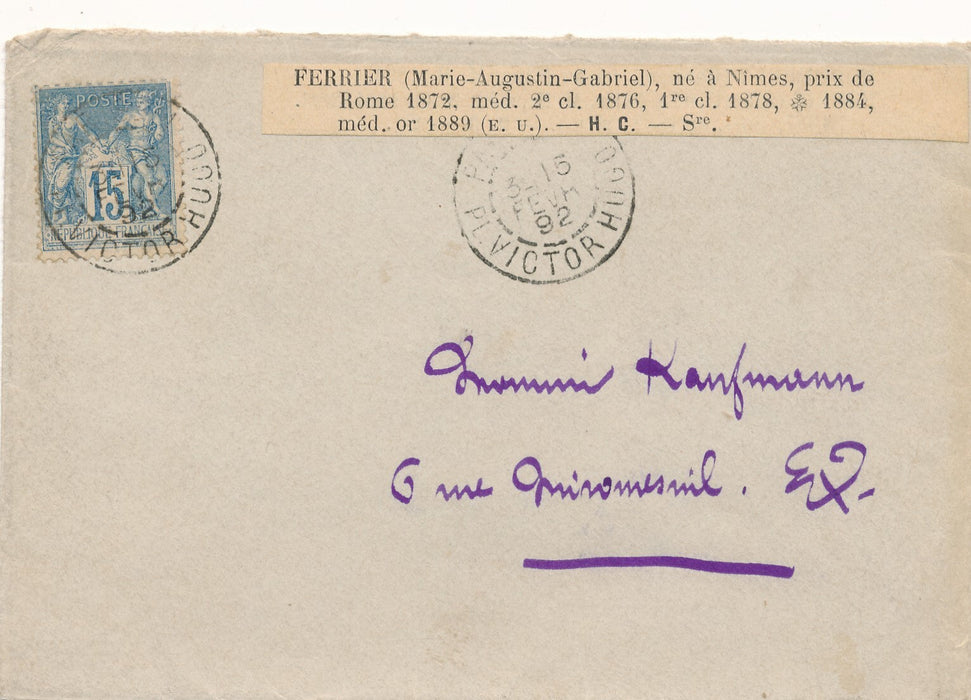 FERRIER (Marie-Augustin-Gabriel), né à Nîmes, prix de
Rome 1872, méd. 2e cl. 1876, 1re cl. 1878, ❄ 1884,
méd. or 1889 (E. U.). — H. C. — Sre.
POSTE
15
RÉPUBLIQUE FRANÇAISE
92
VICTOR HUGO
15
92
PL VICTOR HUGO
Kaufmann
6 rue